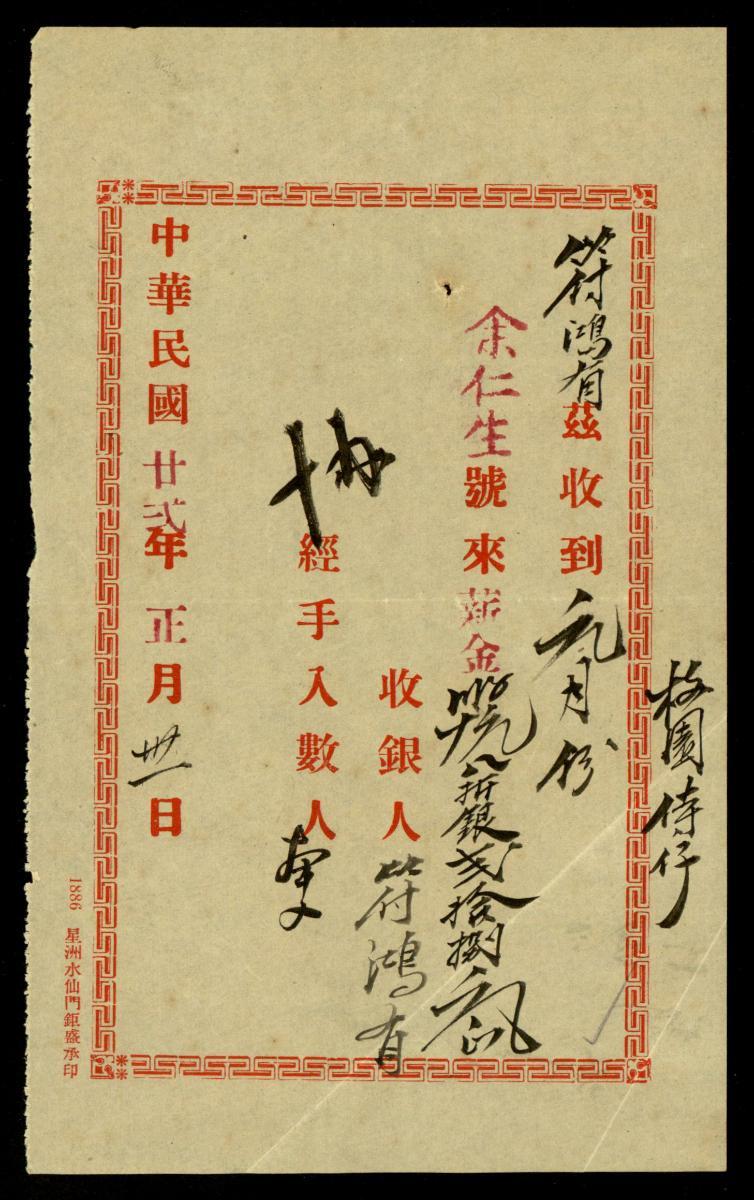 梅園侍仔
符鴻有茲收到元月份
余仁生號來薪金八折銀弍拾捌元正
收銀人符鴻有
協經手入數人
中華民國廿弍年正月卅一日
1886 星洲水仙門鉅盛承印